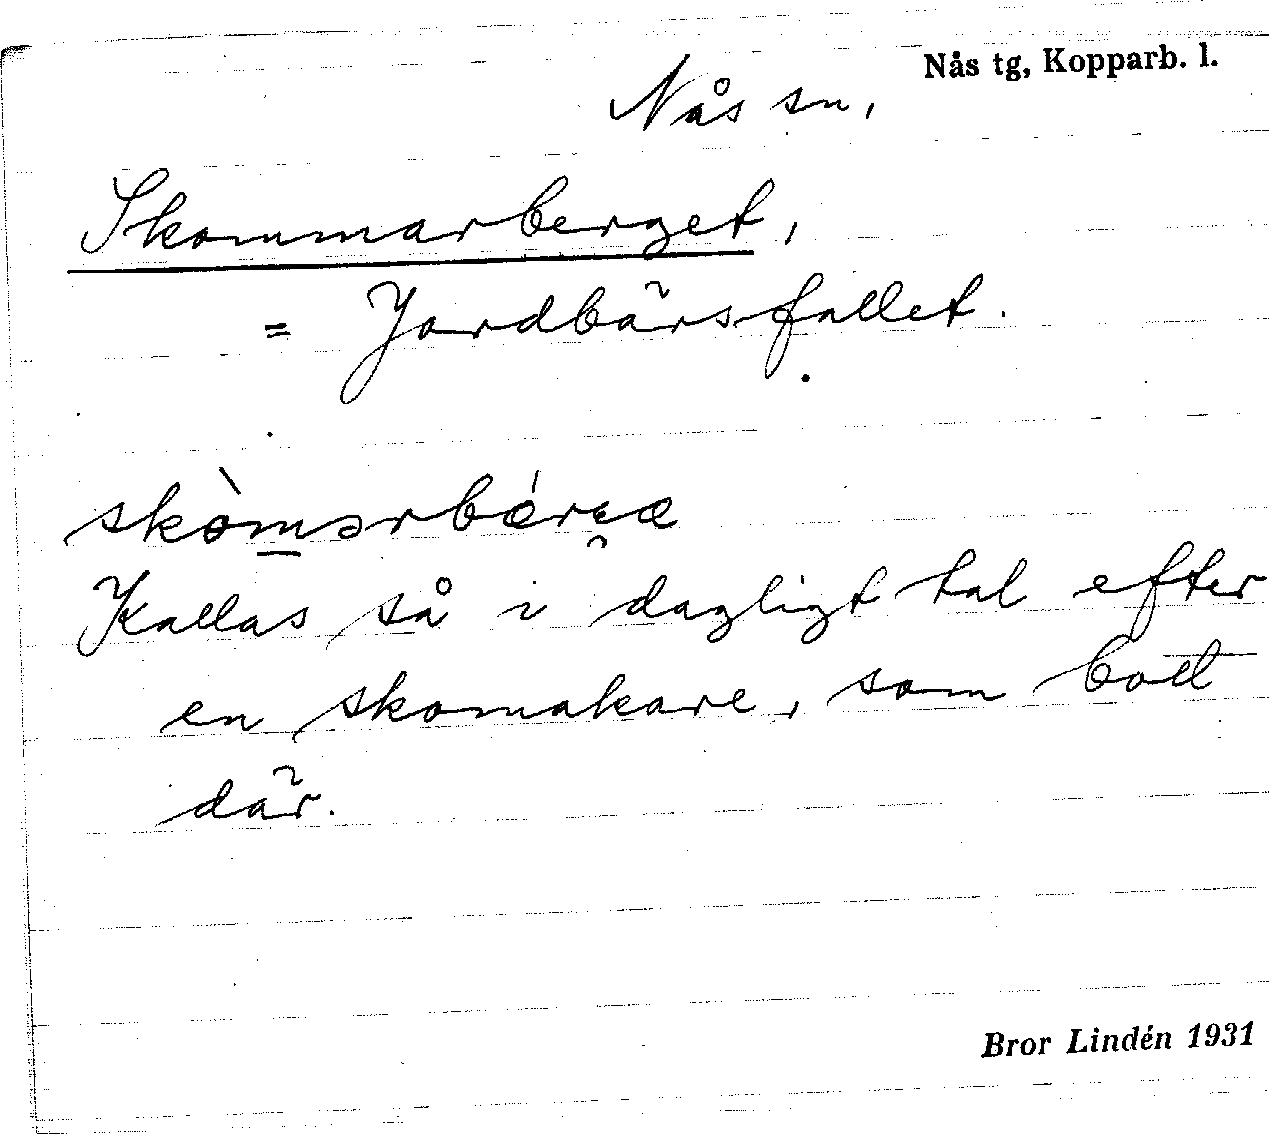 Nås tg, Kopparb. l.
Nås sn,
Skommarberget,
= Jordbärsfallet.
skòmərbǽrɛæ
Kallas så i dagligt tal efter
en skomakare, som bott
där.
Bror Lindén 1931